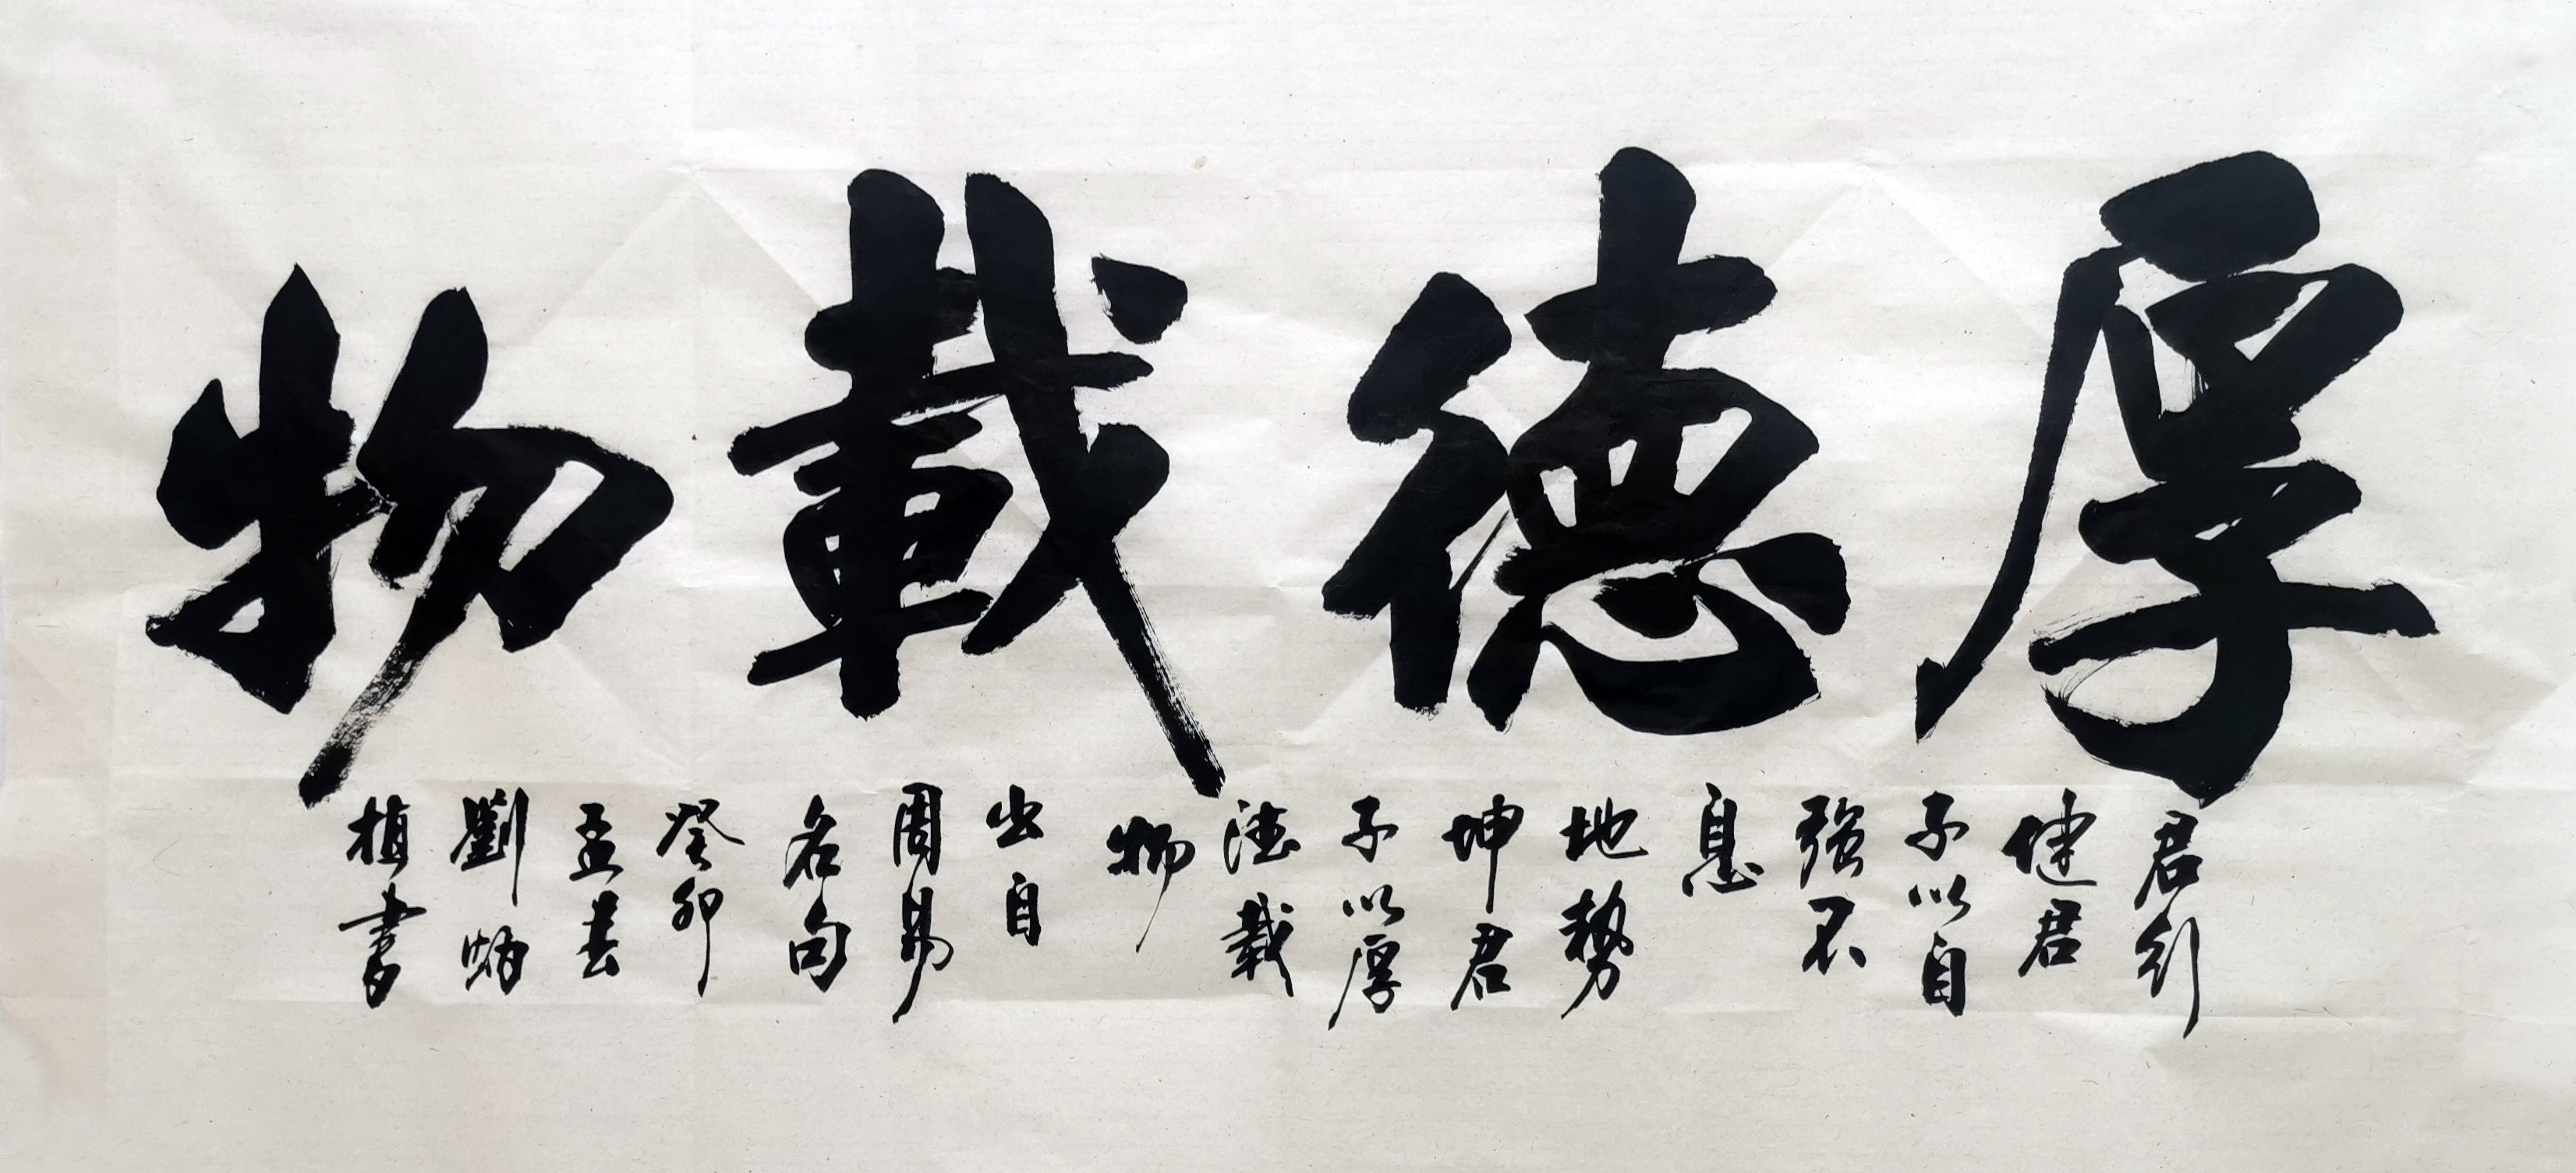 厚德載物
君行
健君
子以自
強不
息
地勢
坤君
子以厚
德載
物
出自
周易
名句
癸卯
孟春
劉炳
植書